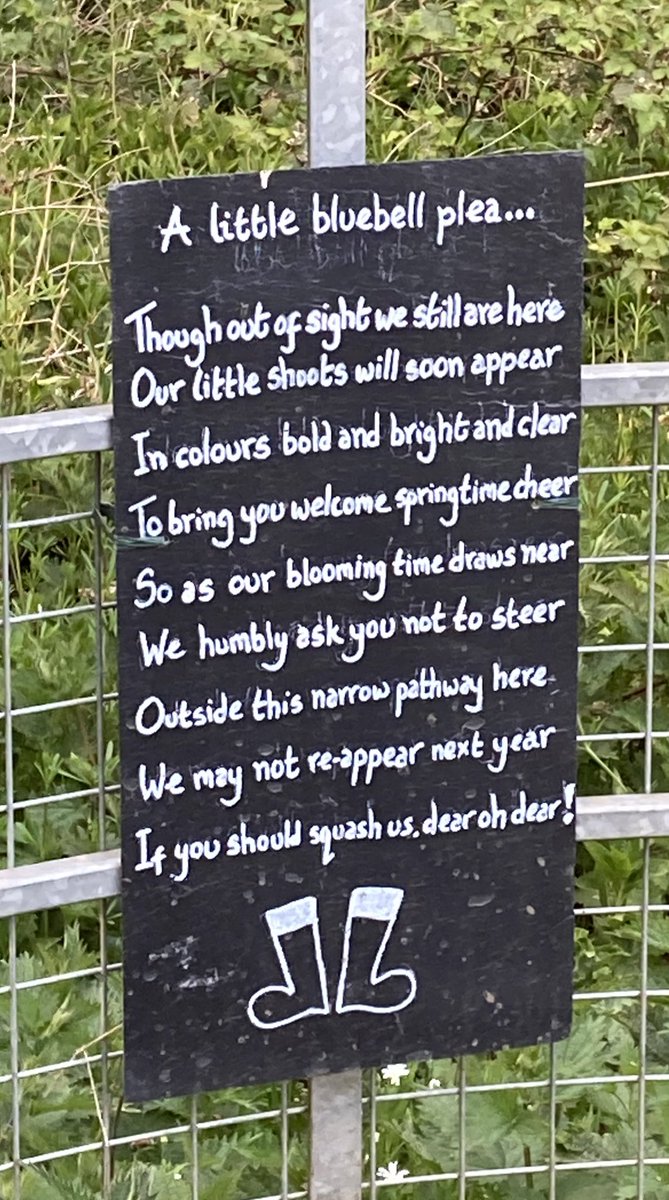 A little bluebell plea...
Though out of sight we still are here
Our little shoots will soon appear
In colours bold and bright and clear
To bring you welcome springtime cheer
So as our blooming time draws near
We humbly ask you not to steer
Outside this narrow pathway here
We may not re-appear next year
If you should squash us, dear oh dear!